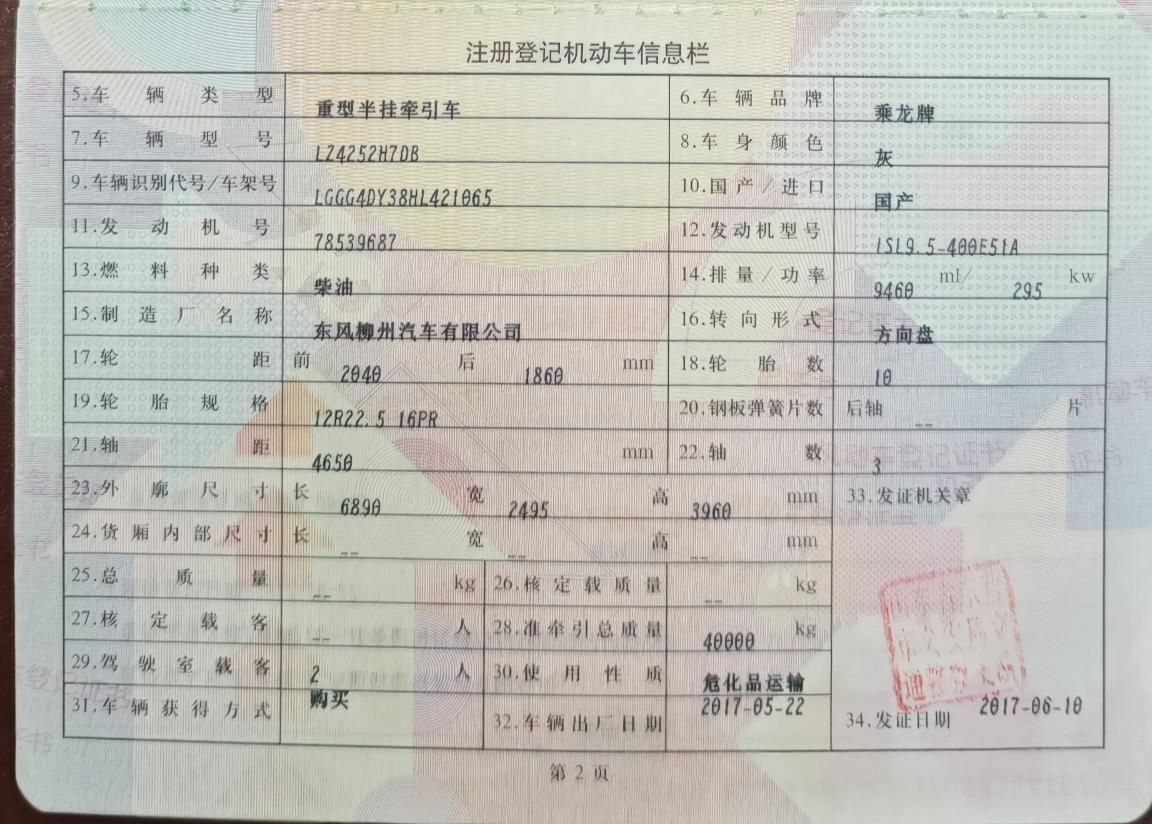 注册登记机动车信息栏
5.车辆类型 重型半挂牵引车 6.车辆品牌 乘龙牌
7.车辆型号 LZ4252H7DB 8.车身颜色 灰
9.车辆识别代号/车架号 LGGG4DY38HL421065 10.国产/进口 国产
11.发动机号 78539687 12.发动机型号 ISL9.5-400E51A
13.燃料种类 柴油 14.排量/功率 9460 ml/ 295 kw
15.制造厂名称 东风柳州汽车有限公司 16.转向形式 方向盘
17.轮距 前 2040 后 1860 mm 18.轮胎数 10
19.轮胎规格 12R22.5 16PR 20.钢板弹簧片数 后轴 -- 片
21.轴距 4650 mm 22.轴数 3
23.外廓尺寸 长 6890 宽 2495 高 3960 mm 33.发证机关章
24.货厢内部尺寸 长 -- 宽 -- 高 -- mm
25.总质量 -- kg 26.核定载质量 -- kg
27.核定载客 -- 人 28.准牵引总质量 40000 kg
29.驾驶室载客 2 人 30.使用性质 危化品运输
31.车辆获得方式 购买 32.车辆出厂日期 2017-05-22 34.发证日期 2017-06-10
第 2 页